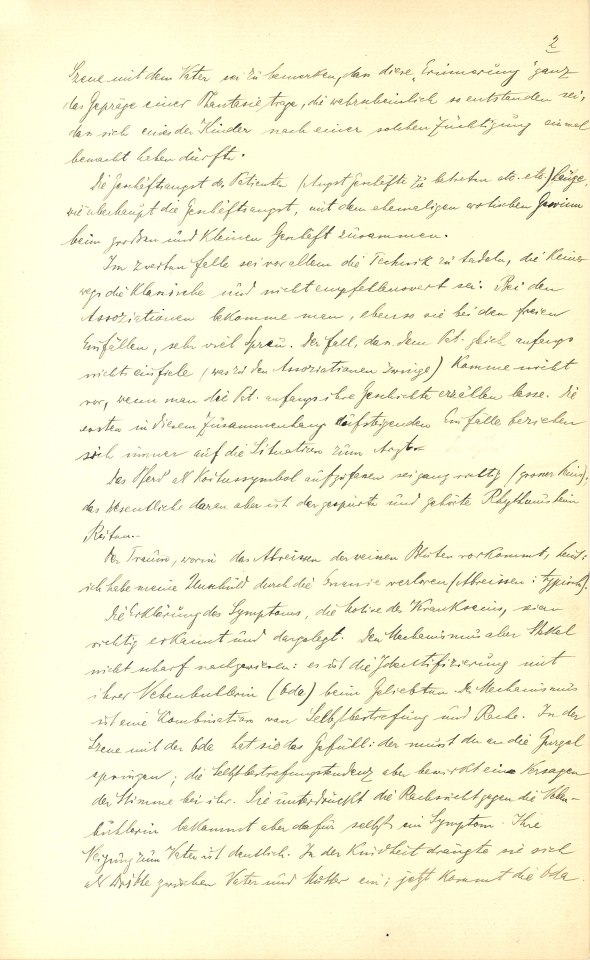 2
Szene mit dem Vater sei zu bemerken, dass diese „Erinnerung" ganz
das Gepräge einer Phantasie trage, die wahrscheinlich so entstanden sei,
dass sich eines der Kinder nach einer solchen Züchtigung einmal
bemacht haben dürfte.
Die Geschäftsangst des Patienten (Angst Geschäfte zu betreten etc. etc.) hänge,
wie überhaupt die Geschäftsangst, mit dem ehemaligen erotischen Gewinn
beim großen und kleinen Geschäft zusammen.
Im zweiten Falle sei vor allem die Technik zu tadeln, die keines-
wegs die klassische und nicht empfehlenswert sei. Bei den
Assoziationen bekomme man, ebenso wie bei den freien
Einfällen, sehr viel Spreu. Der Fall, dass dem Pat. gleich anfangs
nichts einfiele (was zu den Assoziationen zwinge) komme nicht
vor, wenn man die Pat. anfangs ihre Geschichte erzählen lasse. Die
ersten in diesem Zusammenhang aufsteigenden Einfälle beziehen
sich immer auf die Situation zum Arzt.
Das Pferd als Koitussymbol aufzufassen sei ganz richtig (grosser Penis);
das Wesentliche daran aber ist der gespürte und gehörte Rhythmus beim
Reiten.
Der Traum, worin das Abreissen der weißen Blüten vorkommt, heißt:
ich habe meine Unschuld durch die Onanie verloren (Abreissen: typisch).
Die Erklärung des Symptoms, die Motive des Krankseins, seien
richtig erkannt und dargelegt. Den Mechanismus aber Stekel
nicht scharf nachgewiesen: es ist die Identifizierung mit
ihrer Nebenbuhlerin (Oda) beim Geliebten. Der Mechanismus
ist eine Kombination von Selbstbestrafung und Rache. In der
Szene mit der Oda hat sie das Gefühl: der musst du an die Gurgel
springen; die Selbstbestrafungstendenz aber bewirkt ein Versagen
der Stimme bei ihr. Sie unterdrückt die Rachsucht gegen die Neben-
buhlerin bekommt aber dafür selbst ein Symptom. Ihre
Neigung zum Vater ist deutlich. In der Kindheit drängte sie sich
als Dritte zwischen Vater und Mutter ein; jetzt kommt die Oda